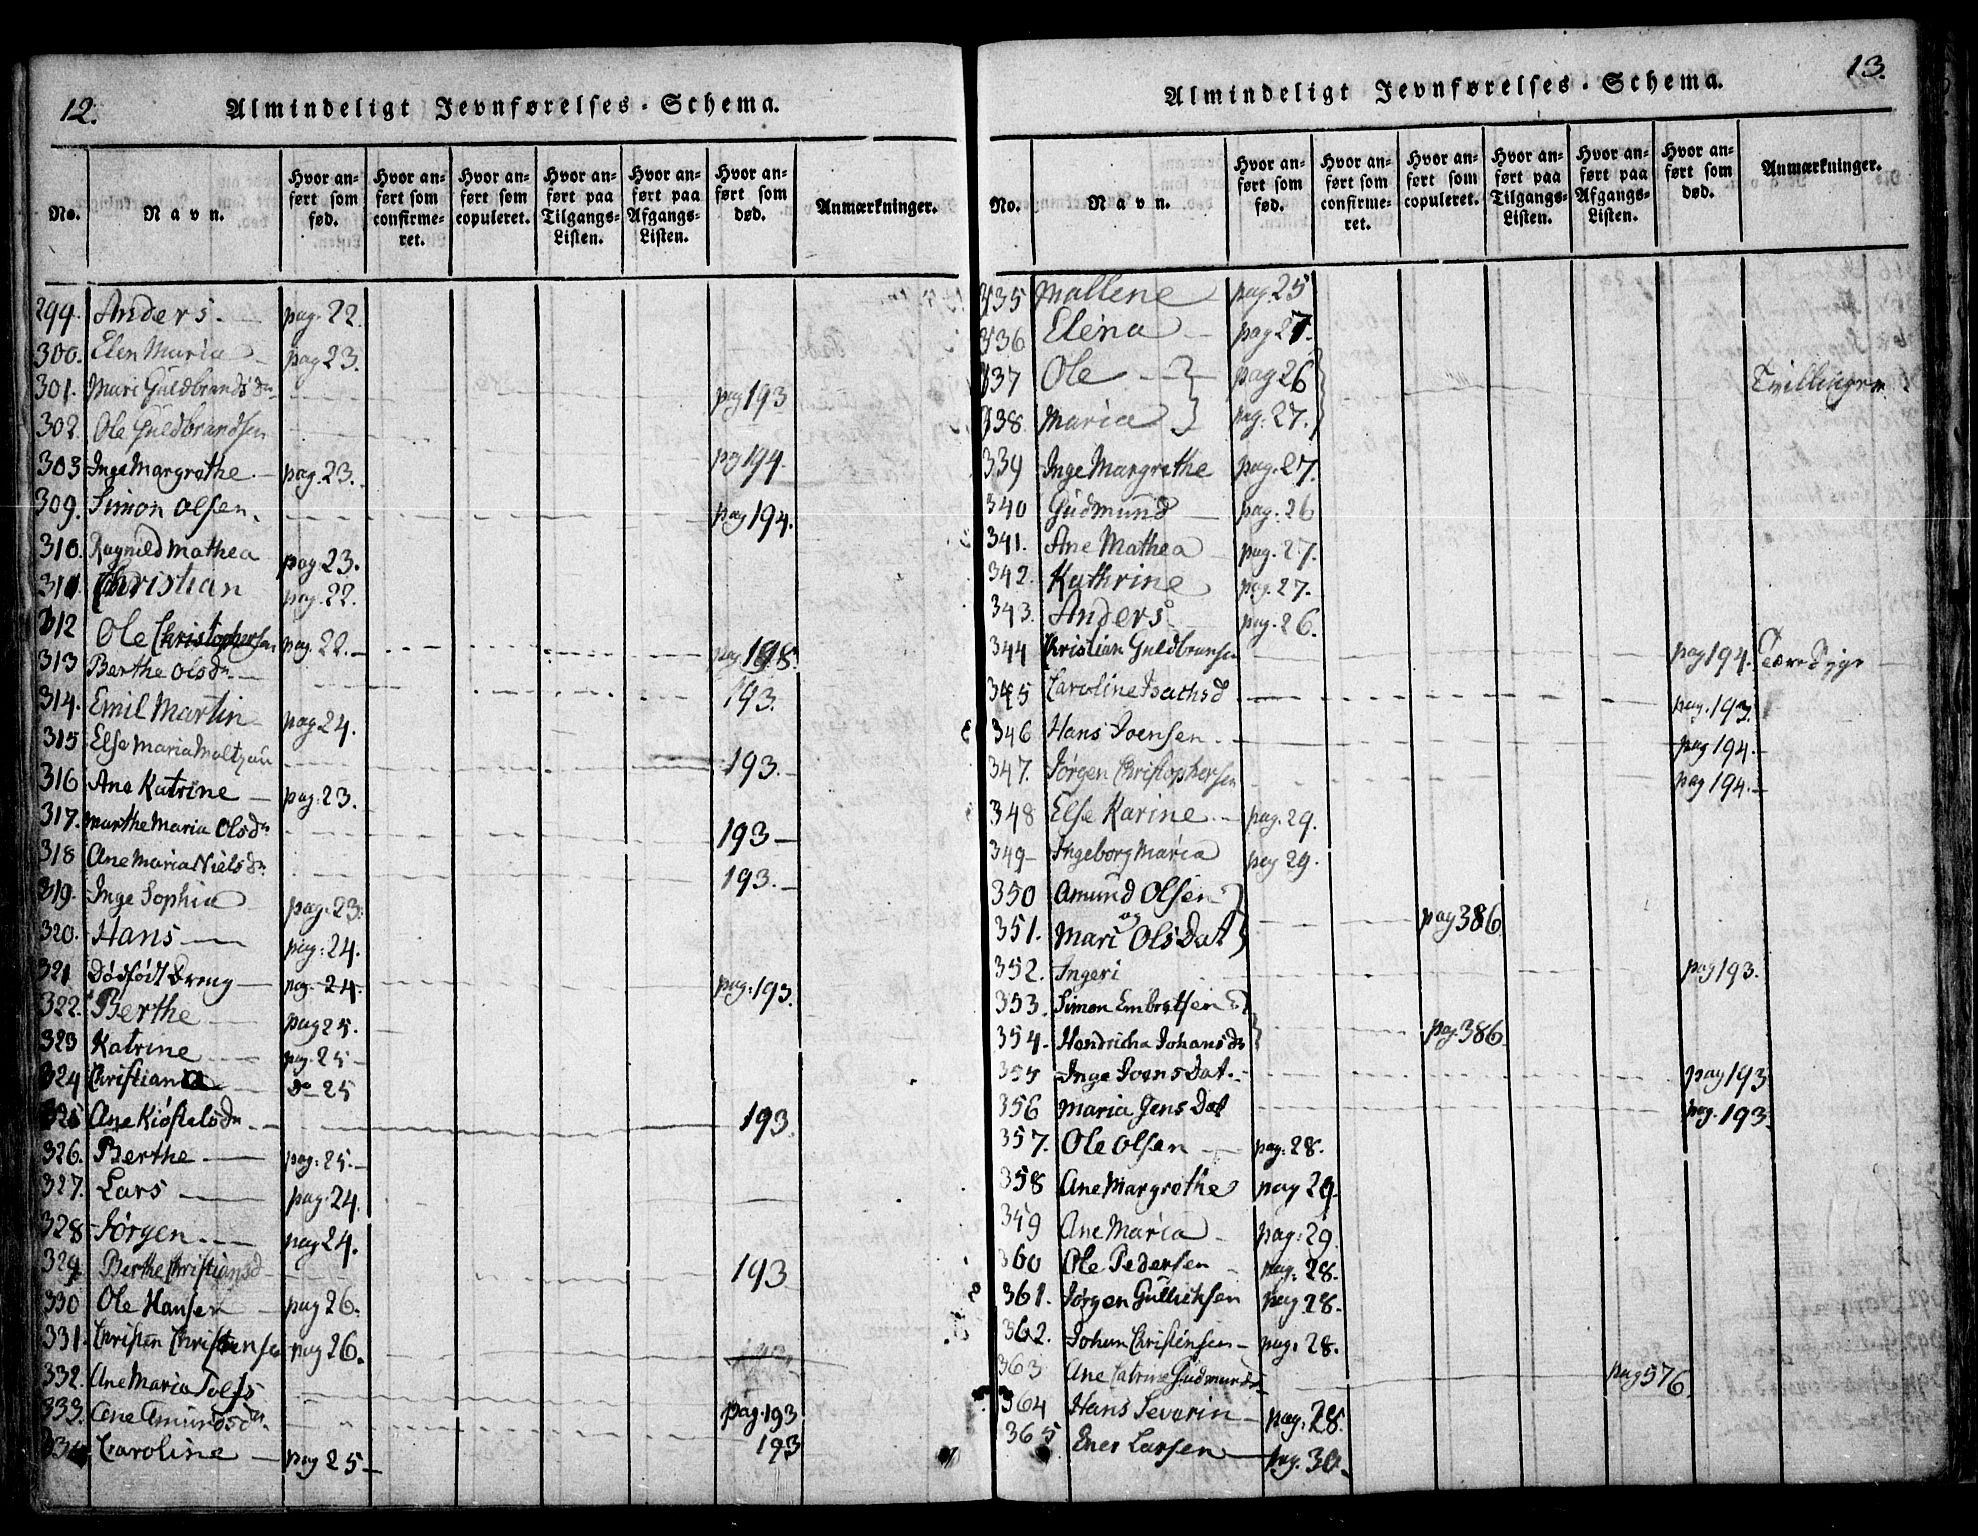 12.
Almindeligt Jevnførelses-Schema.
No.
Navn.
Hvor anført som fød.
Hvor anført som confirmeret.
Hvor anført som copuleret.
Hvor anført paa Tilgangs-Listen.
Hvor anført paa Afgangs-Listen.
Hvor anført som død.
Anmærkninger.
299. Anders. pag. 22.
300. Elen Maria pag 23.
301. Mari Guldbrandsdr pag 193
302. Ole Guldbrandsen pag 194.
303 Inge Margrethe pag. 23.
309. Simon Olsen. pag 194.
310. Ragnild Mathea pag 23.
311 Christian pag. 22.
312 Ole Christophersen pag. 22. pag. 198.
313 Berthe Olsdr 193.
314. Emil Martin pag 24.
315 Else Maria Moltzau 193.
316 Ane Katrine pag. 23.
317. Marthe Maria Olsdr 193
318 Ane Maria Nielsdr 193.
319. Inge Sophia pag. 23.
320. Hans pag. 24.
321 Dödfödt Dreng pag. 24. pag. 193.
322. Berthe pag 25.
323 Katrine pag. 25
324 Christiana do 25
325 Ane Kiöstelsdr 193.
326. Berthe pag. 25.
327. Lars pag. 24.
328 Jörgen pag 24.
329 Berthe Christiansd 193
330 Ole Hansen pag 26.
331. Christen Christensen pag 26.
332. Ane Maria pag. 193
333. Ane Amundsdr 193
334 Caroline pag 25
13.
Almindeligt Jevnførelses-Schema.
No.
Navn.
Hvor anført som fød.
Hvor anført som confirmeret.
Hvor anført som copuleret.
Hvor anført paa Tilgangs-Listen.
Hvor anført paa Afgangs-Listen.
Hvor anført som død.
Anmærkninger.
335 Mallene pag. 25
336 Elena pag. 27.
337 Ole pag 26 Tvillinger
338 Maria pag. 27.
339 Inge Margrethe pag. 27.
340 Gudmund pag. 26
341. Ane Mathea pag. 27.
342. Kathrine pag. 27.
343. Anders pag. 26.
344 Christian Guldbransen pag 194.
345 Caroline Isachsd pag. 193.
346 Hans Joensen pag 194.
347. Jörgen Christophersen pag 194.
348 Else Karine pag. 29.
349 Ingeborg Maria pag 29.
350 Amund Olsen og
351. Mari Olsdat pag 386
352. Ingeri pag 193.
353. Simon Embretsen
354. Hendricha Johansdr pag. 386
355 Inge Joensdat. pag 193
356 Maria Jensdat pag. 193
357. Ole Olsen pag. 28.
358 Ane Margrethe pag 29.
349 Ane Maria pag. 29.
360 Ole Pedersen pag. 28.
361. Jörgen Gullichsen pag 28.
362. Johan Christensen pag. 28.
363 Ane Catrine Gudmundsd pag 576
364 Hans Severin pag. 28.
365 Ener Larsen pag. 30.